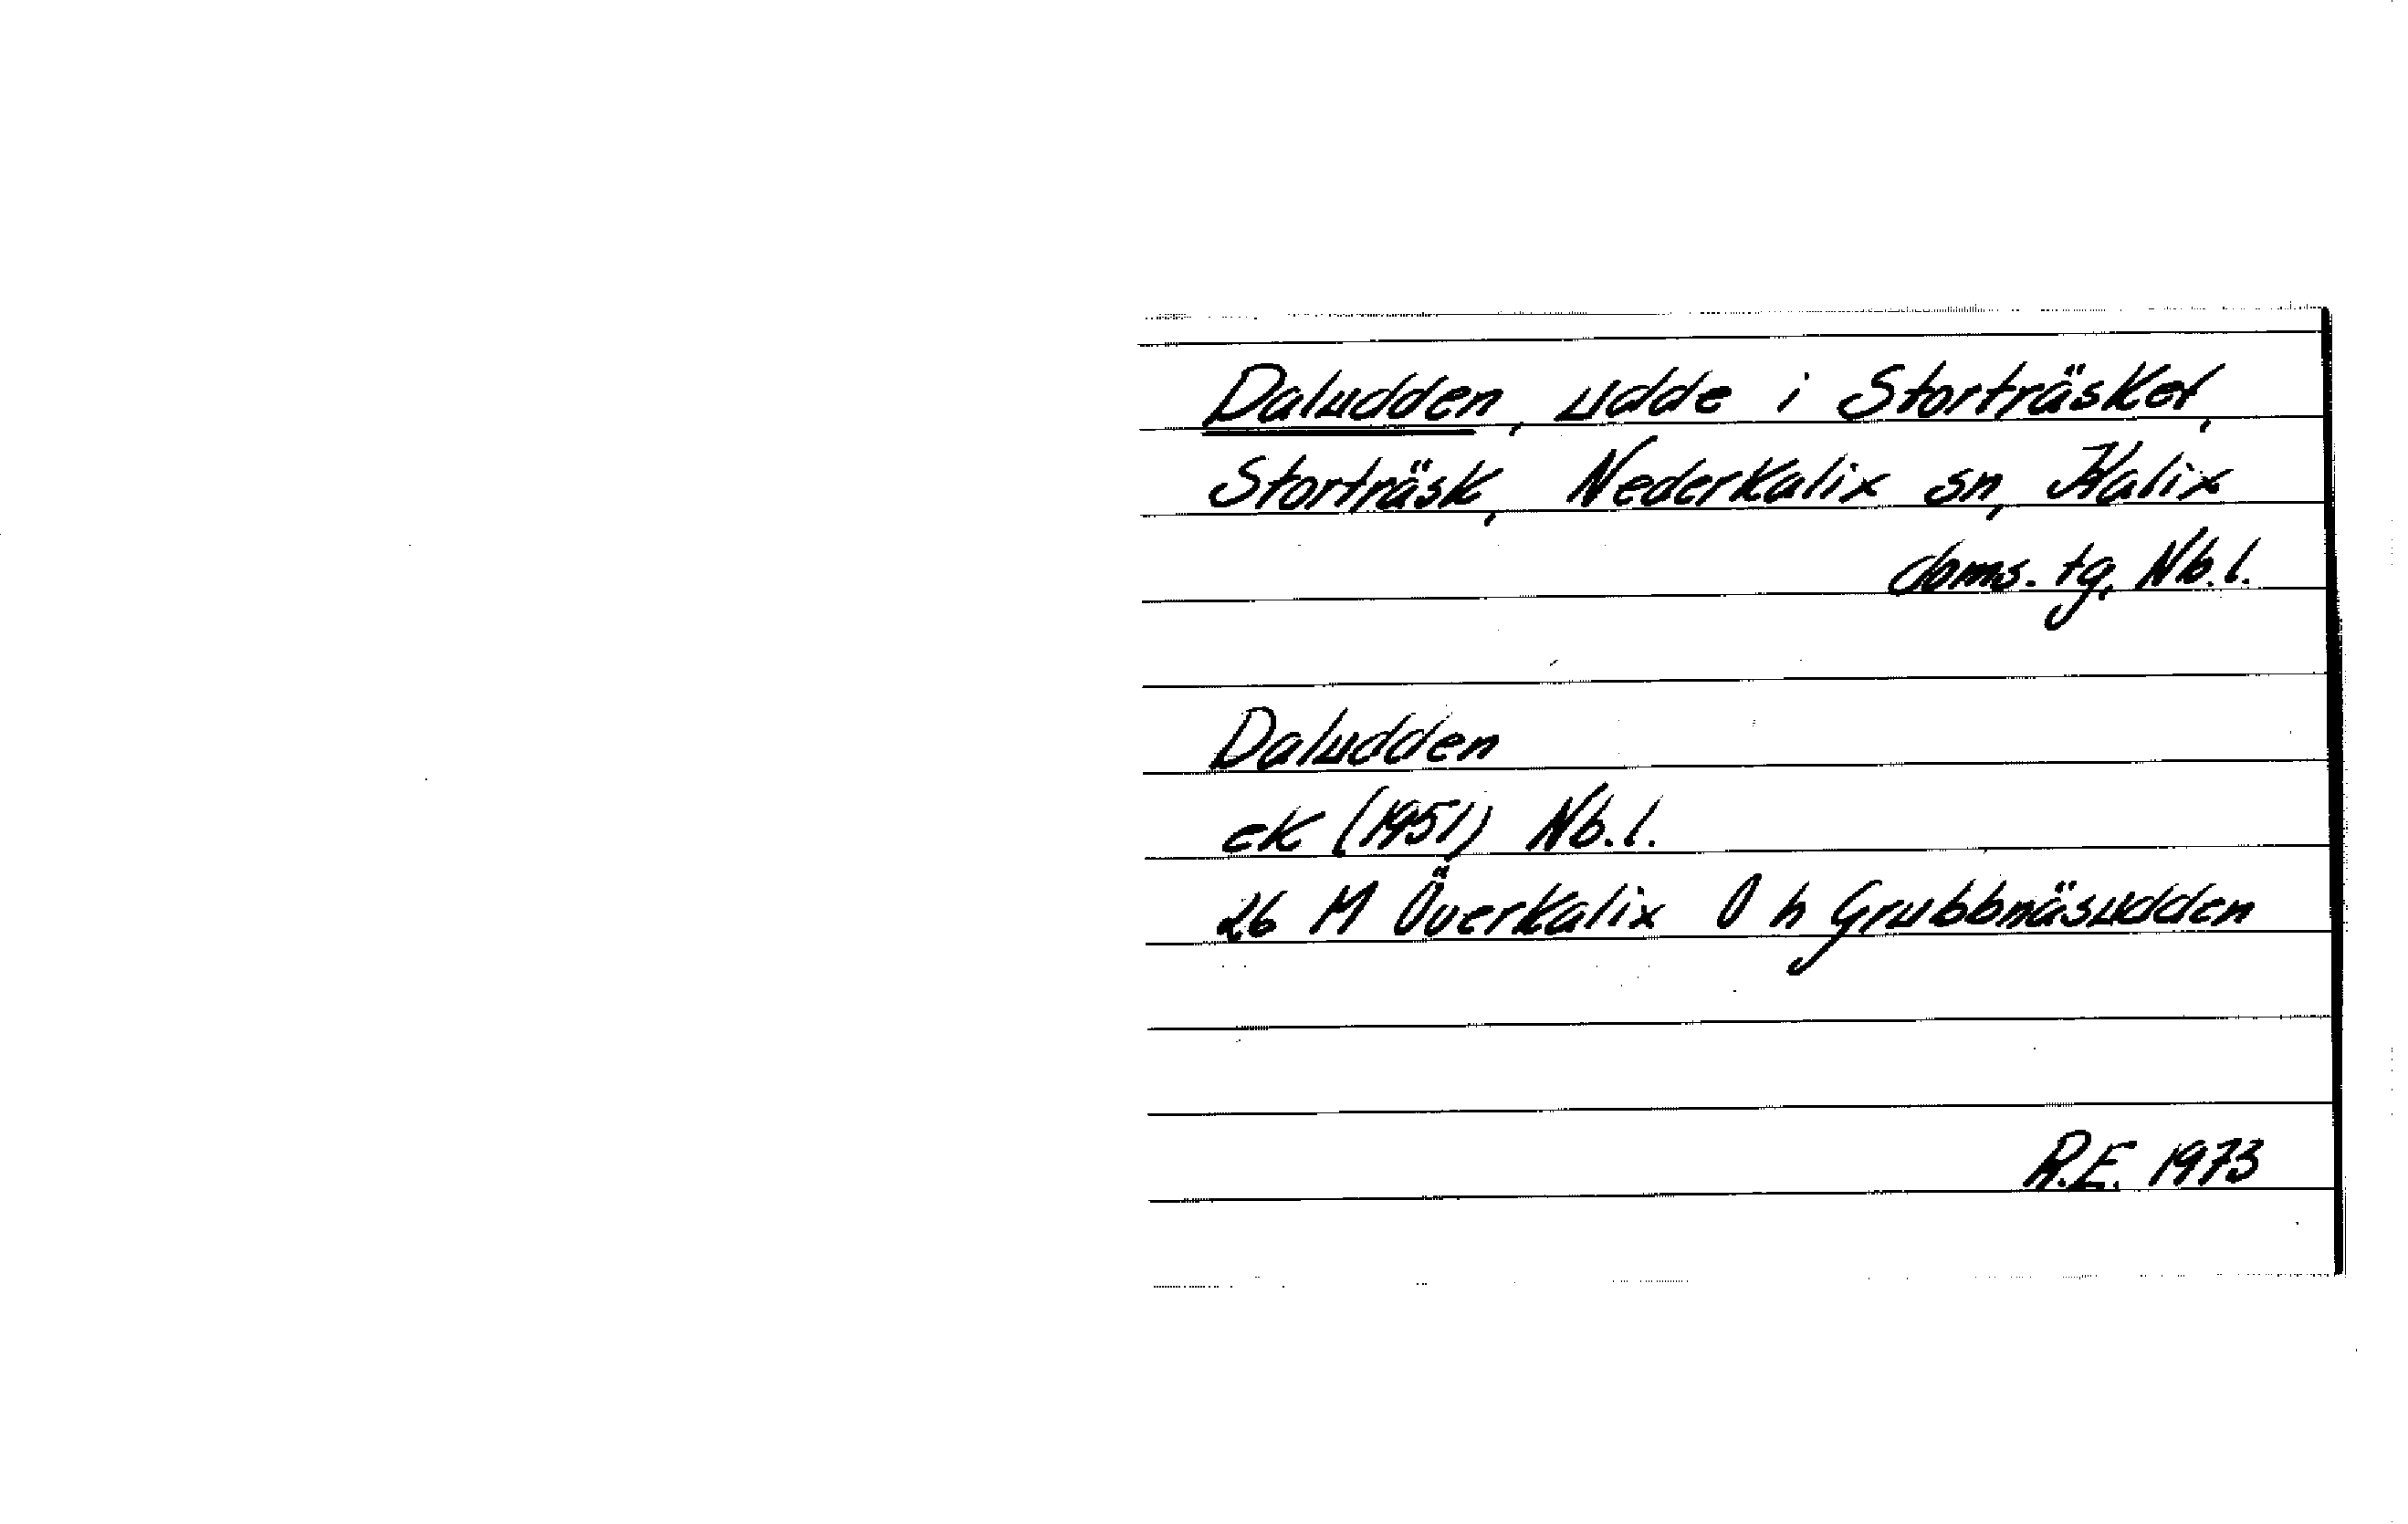 Daludden, udde i Storträsket,
Storträsk, Nederkalix sn, Kalix
doms. tg, Nb.l.
Daludden
ek (1951) Nb.l.
26 M Överkalix O h Grubbnäsudden
R.E. 1973